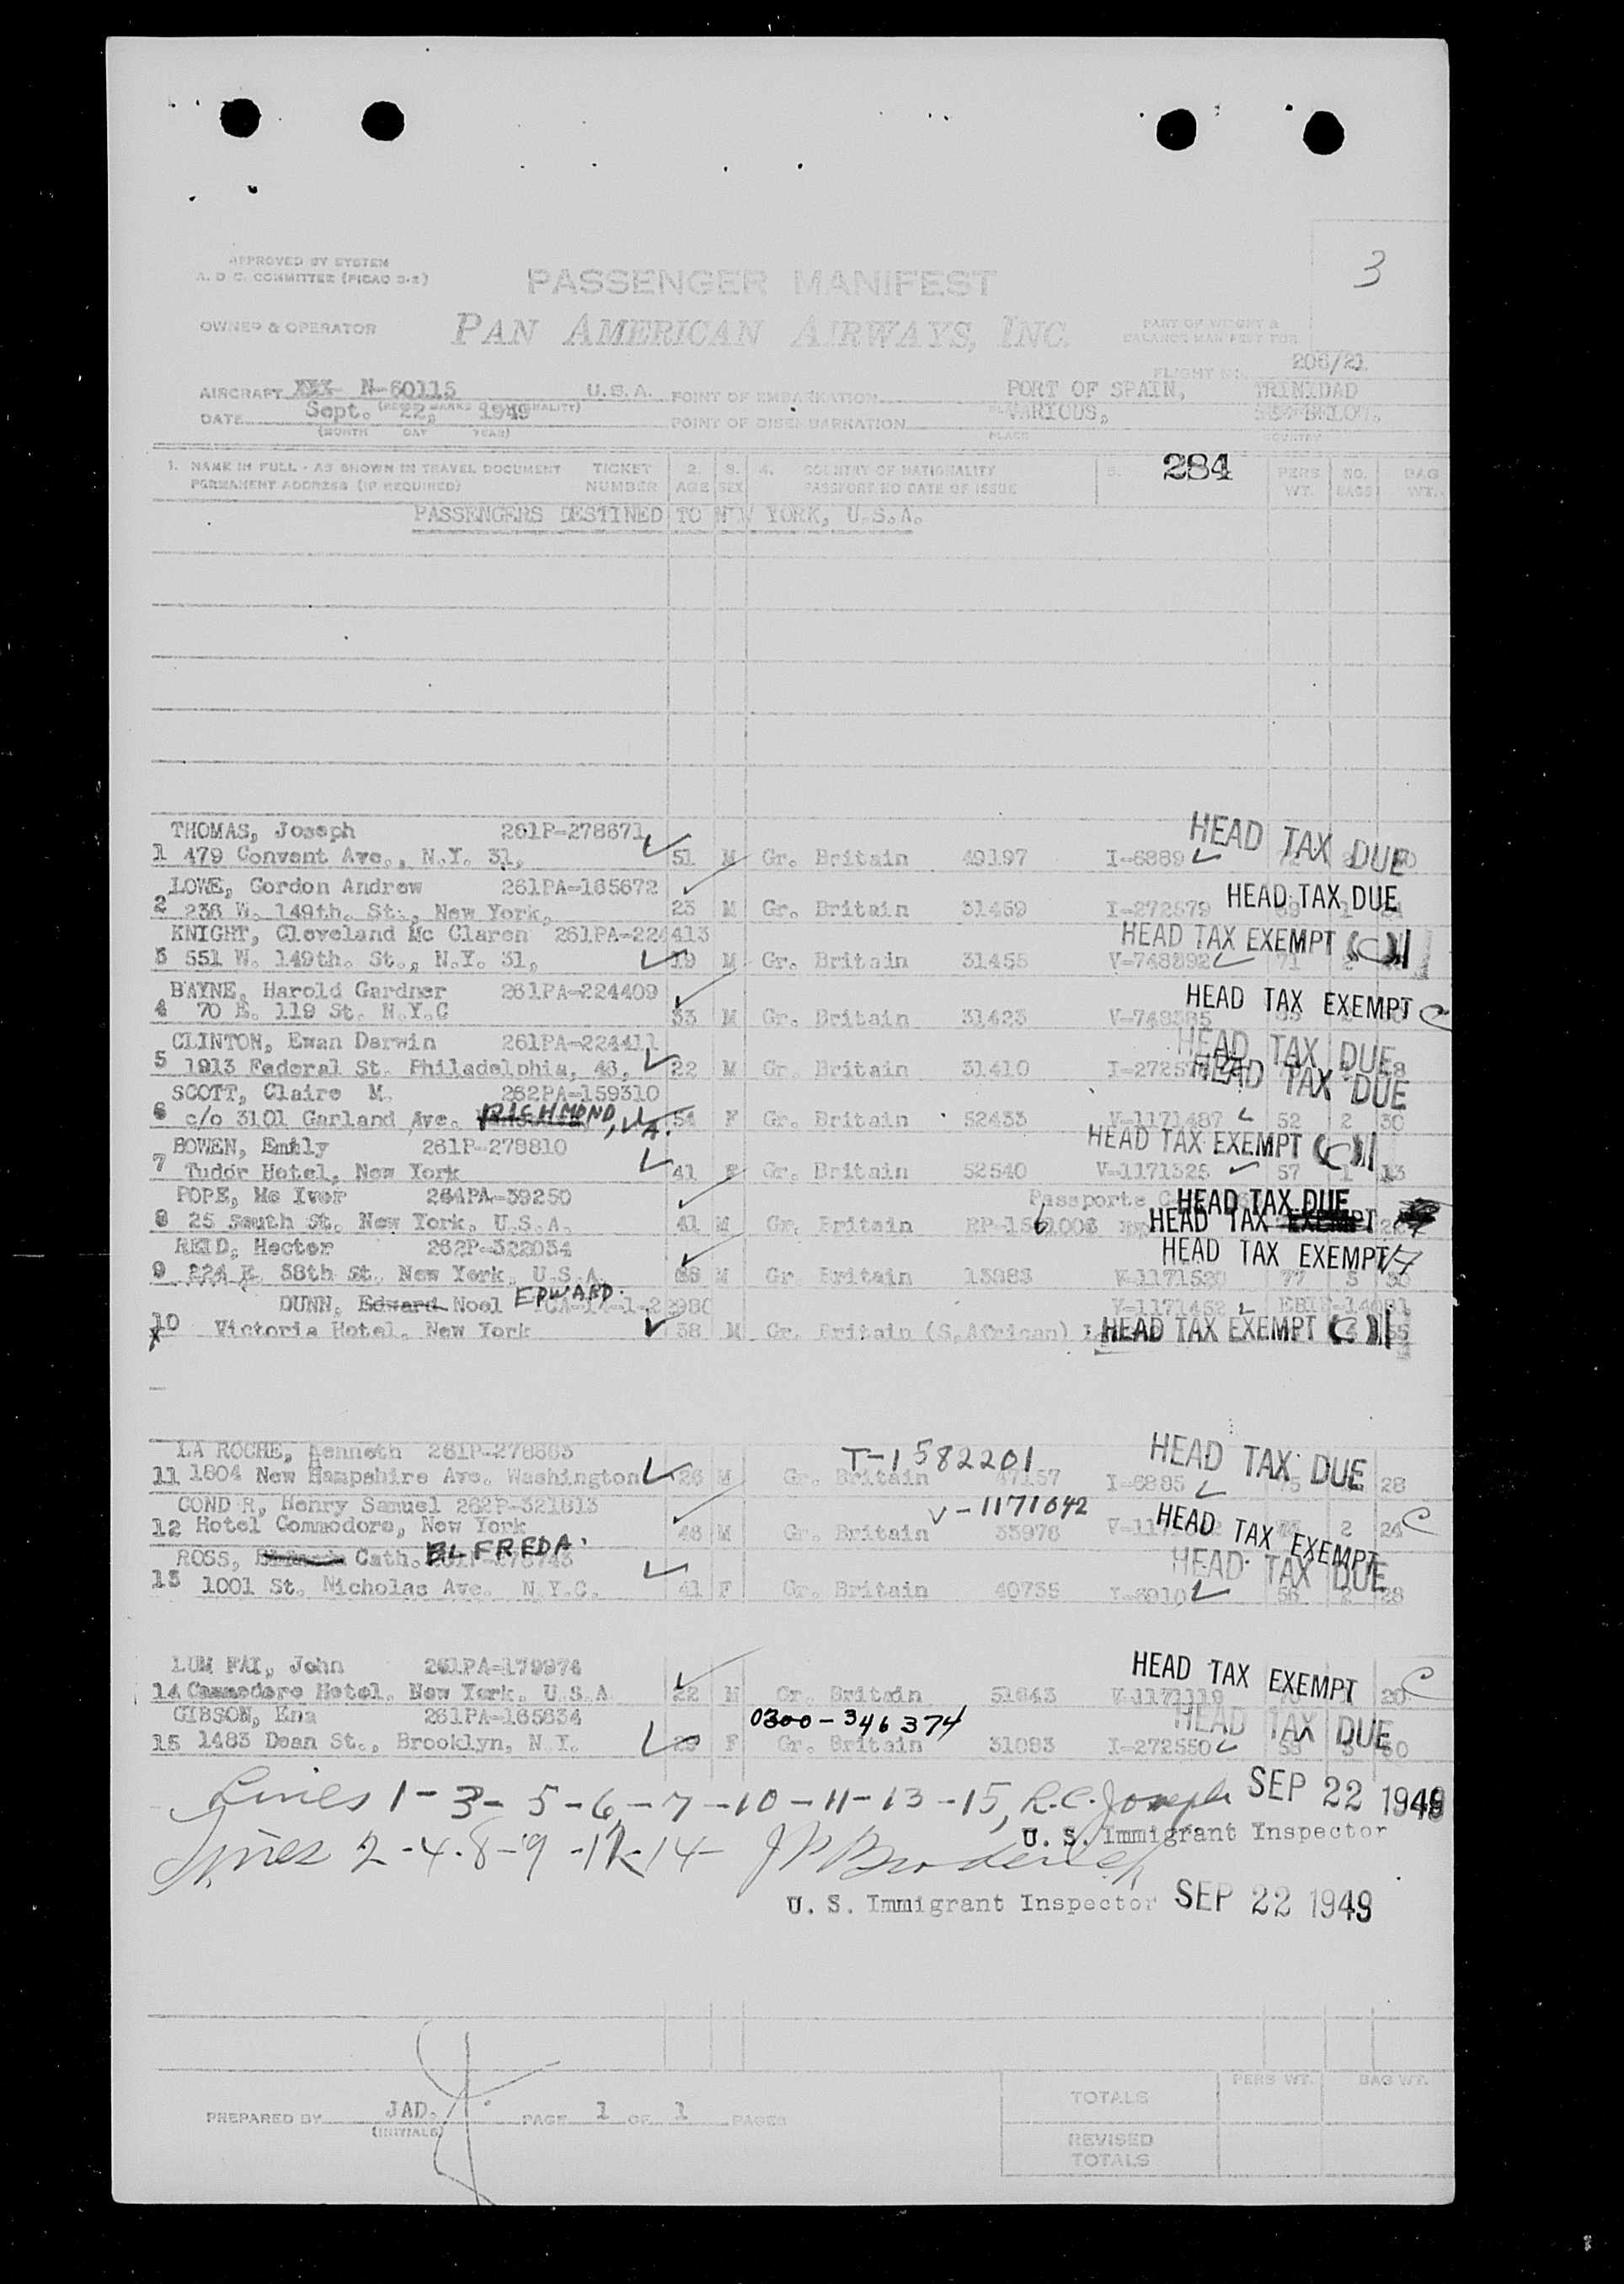 3
APPROVED BY SYSTEM
A. D C. COMMITTEE (PICAO 3-2)
PASSENGER MANIFEST
OWNER & OPERATOR
PAN AMERICAN AIRWAYS, INC.
PART OF WEIGHT &
BALANCE MANIFEST FOR
FLIGHT NO. 206/21
AIRCRAFT XXX- N-60115 U.S.A. POINT OF EMBARKATION PORT OF SPAIN, TRINIDAD
DATE Sept. 22, 1949 POINT OF DISEMBARKATION VARIOUS, BELOW.
(MONTH DAY YEAR) PLACE COUNTRY
1. NAME IN FULL - AS SHOWN IN TRAVEL DOCUMENT TICKET 2. 3. 4. COUNTRY OF NATIONALITY 5. 284 PERS NO. BAG
PERMANENT ADDRESS (IF REQUIRED) NUMBER AGE SEX PASSPORT NO DATE OF ISSUE WT. BAGS WT.
PASSENGERS DESTINED TO NEW YORK, U.S.A.
THOMAS, Joseph 261P-278671 HEAD TAX DUE
1 479 Convent Ave., N.Y. 31, 51 M Gr. Britain 49197 I-6889
LOWE, Gordon Andrew 261PA-165672 HEAD TAX DUE
2 236 W. 149th. St., New York, 23 M Gr. Britain 31459 I-272579
KNIGHT, Cleveland Mc Claren 261PA-224413 HEAD TAX EXEMPT (C)
3 551 W. 149th. St., N.Y. 31, 19 M Gr. Britain 31455 V-748392 71
BAYNE, Harold Gardner 261PA-224409 HEAD TAX EXEMPT C
4 70 E. 119 St. N.Y.C 33 M Gr. Britain 31423
CLINTON, Ewan Darwin 261PA-224411 HEAD TAX DUE
5 1913 Federal St. Philadelphia, 46, 22 M Gr. Britain 31410
SCOTT, Claire M. 262PA-159310 HEAD TAX DUE
6 c/o 3101 Garland Ave. RICHMOND, VA. 54 F Gr. Britain 52433 V-1171487 52 2 30
BOWEN, Emily 261P-278810 HEAD TAX EXEMPT (C)
7 Tudor Hotel, New York 41 F Gr. Britain 52540 V-1171325 57 1 13
POPE, Mc Ivor 264PA-39250 HEAD TAX DUE
8 25 South St. New York, U.S.A. 41 M Gr. Britain HEAD TAX EXEMPT
REID, Hector 262P-322034 HEAD TAX EXEMPT
9 224 E. 38th St. New York, U.S.A. M Gr. Britain 13983 V-1171520 77
DUNN, Edward Noel EDWARD. V-1171462
10 Victoria Hotel, New York 38 M Gr. Britain (S.African) HEAD TAX EXEMPT (C)
LA ROCHE, Kenneth T-1582201 HEAD TAX DUE
11 1804 New Hampshire Ave. Washington 26 M Gr. Britain 47157 I-6885 75 28
Henry Samuel 262P-321813 V-1171042 HEAD TAX EXEMPT C
12 Hotel Commodore, New York 46 M Gr. Britain 33978 2 24
ROSS, Cath. ELFREDA. HEAD TAX DUE
13 1001 St. Nicholas Ave. N.Y.C. 41 F Gr. Britain 40735 I-6910 56 2 28
LUM FAI, John 261PA-179976 HEAD TAX EXEMPT C
14 Commodore Hotel, New York, U.S.A. 22 M Gr. Britain 51643 V-1171119 20
GIBSON, Ena 261PA-165634 0300-346374 HEAD TAX DUE
15 1483 Dean St., Brooklyn, N.Y. F Gr. Britain 31083 I-272550
Lines 1-3-5-6-7-10-11-13-15, R.C. Joseph SEP 22 1949
U. S. Immigrant Inspector
Lines 2-4-8-9-12-14-
U. S. Immigrant Inspector SEP 22 1949
PREPARED BY JAD. PAGE 1 OF 1 PAGES
(INITIALS)
PERS WT. BAG WT.
TOTALS
REVISED
TOTALS